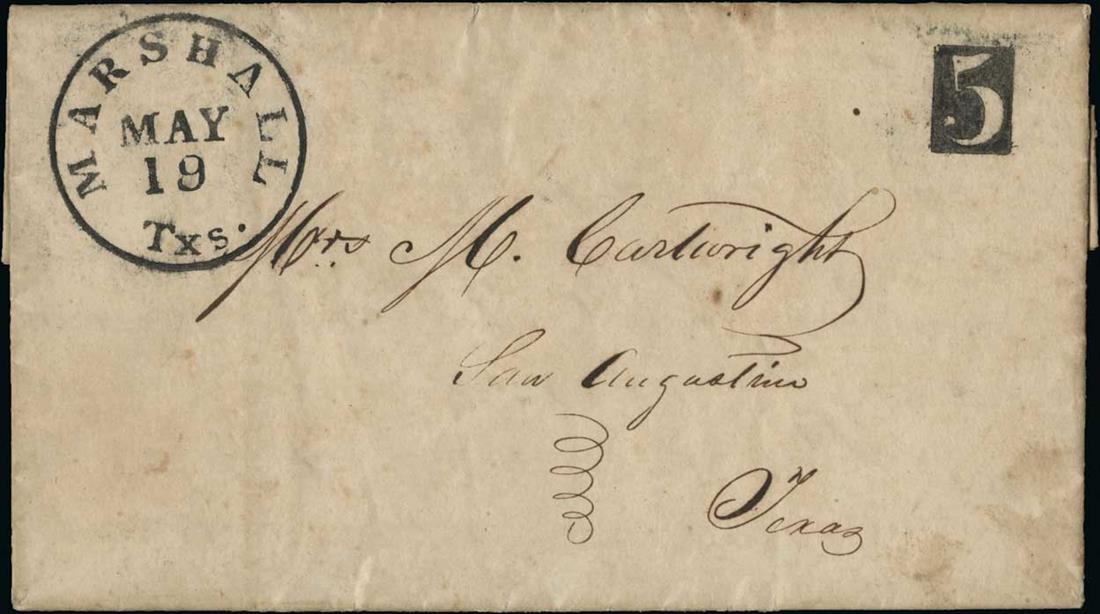 MARSHALL
MAY
19
Txs.
5
Mrs M. Cartwright
San Augustine
Texas